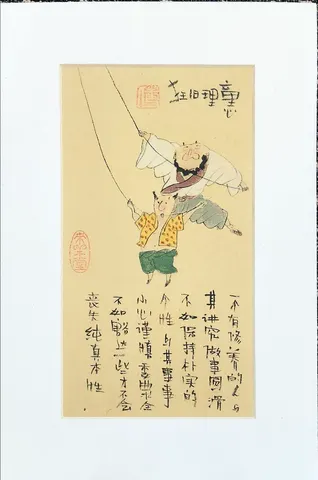 童心
一个有修养的人与
其讲究做事圆滑
不如保持朴实的
个性与其事事
小心谨慎委曲求全
不如豁达一些才不会
丧失纯真本性